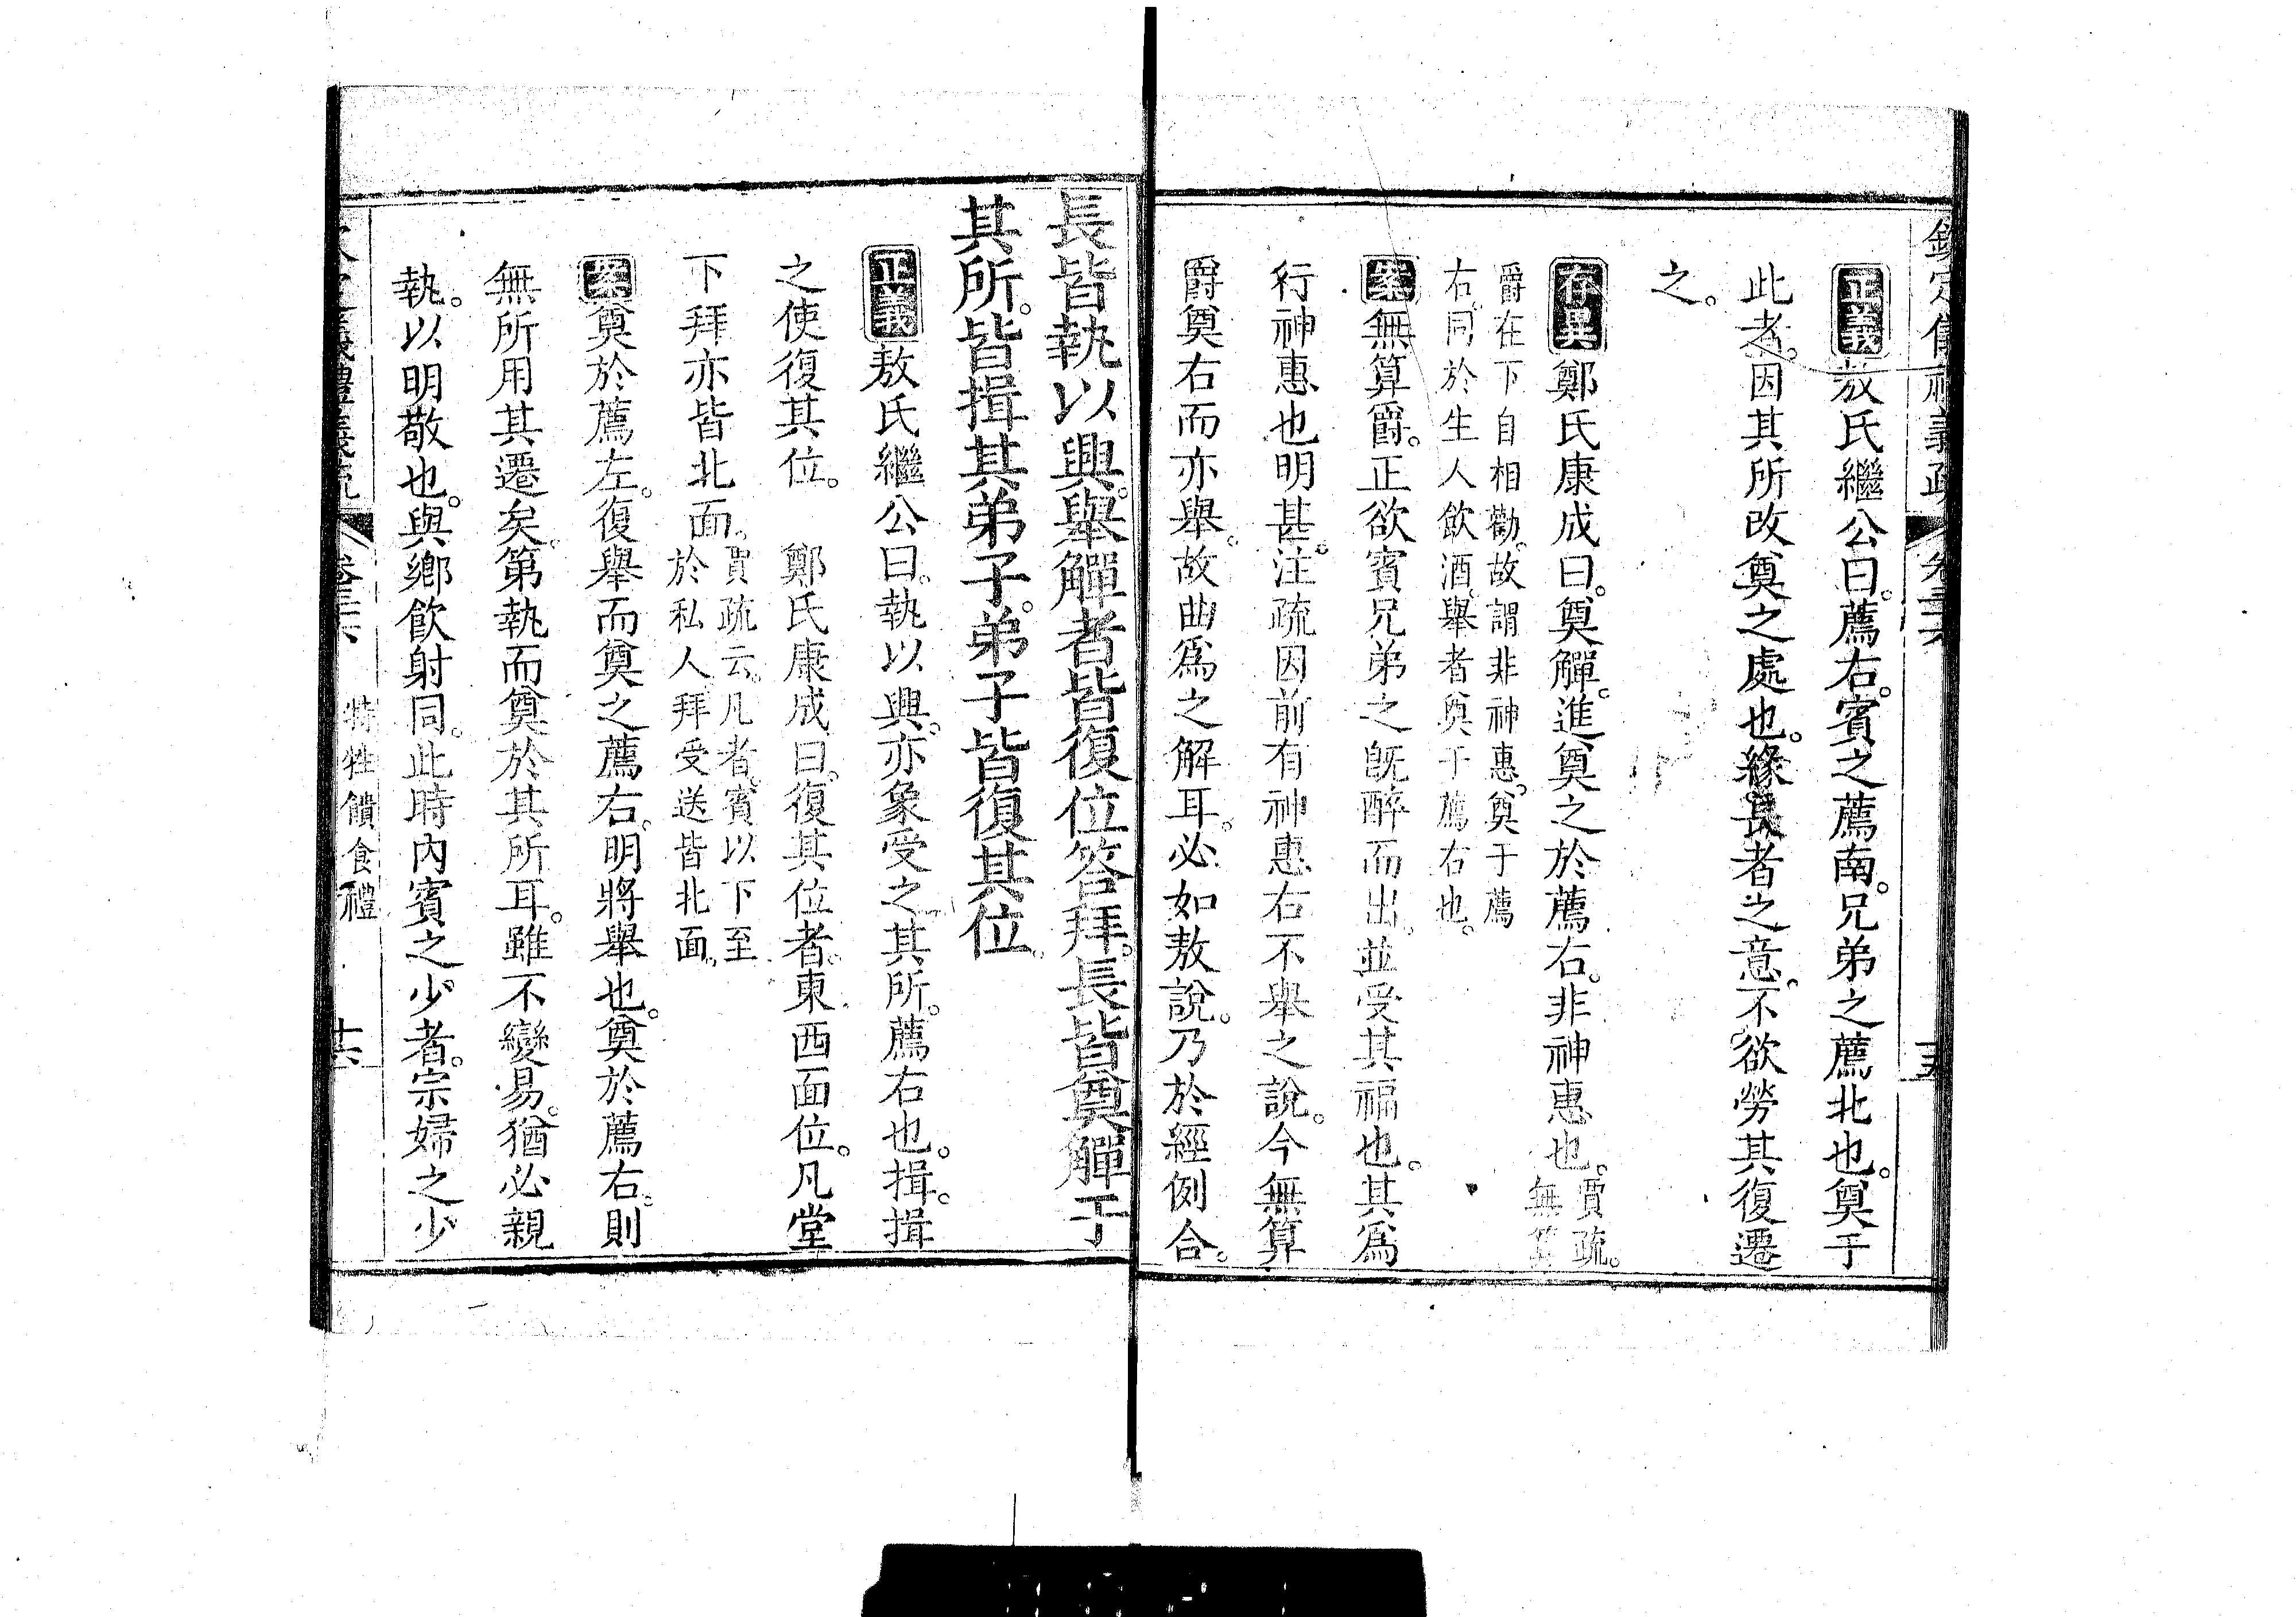 欽定儀禮義疏 卷三十六 十五
正義敖氏繼公曰。薦右。賓之薦南。兄弟之薦北也。奠于
此者。因其所改奠之處也。緣長者之意。不欲勞其復遷
之。
存異鄭氏康成曰。奠觶。進奠之於薦右。非神惠也。賈疏。無算
爵在下自相勸。故謂非神惠。奠于薦
右。同於生人飲酒。舉者奠于薦右也。
案無算爵。正欲賓兄弟之既醉而出。並受其福也。其為
行神惠也明甚。注疏因前有神惠右不舉之說。今無算
爵奠右而亦舉。故曲為之解耳。必如敖說。乃於經例合。
長皆執以興。舉觶者皆復位答拜。長皆奠觶于
其所。皆揖其弟子。弟子皆復其位。
正義敖氏繼公曰。執以興。亦象受之。其所。薦右也。揖。揖
之使復其位。 鄭氏康成曰。復其位者。東西面位。凡堂
下拜亦皆北面。賈疏云。凡者。賓以下至
於私人拜受送皆北面。
案奠於薦左。復舉而奠之薦右。明將舉也。奠於薦右。則
無所用其遷矣。第執而奠於其所耳。雖不變易。猶必親
執。以明敬也。與鄉飲射同。此時內賓之少者。宗婦之少
欽定儀禮義疏 卷三十六 特牲饋食禮 十六